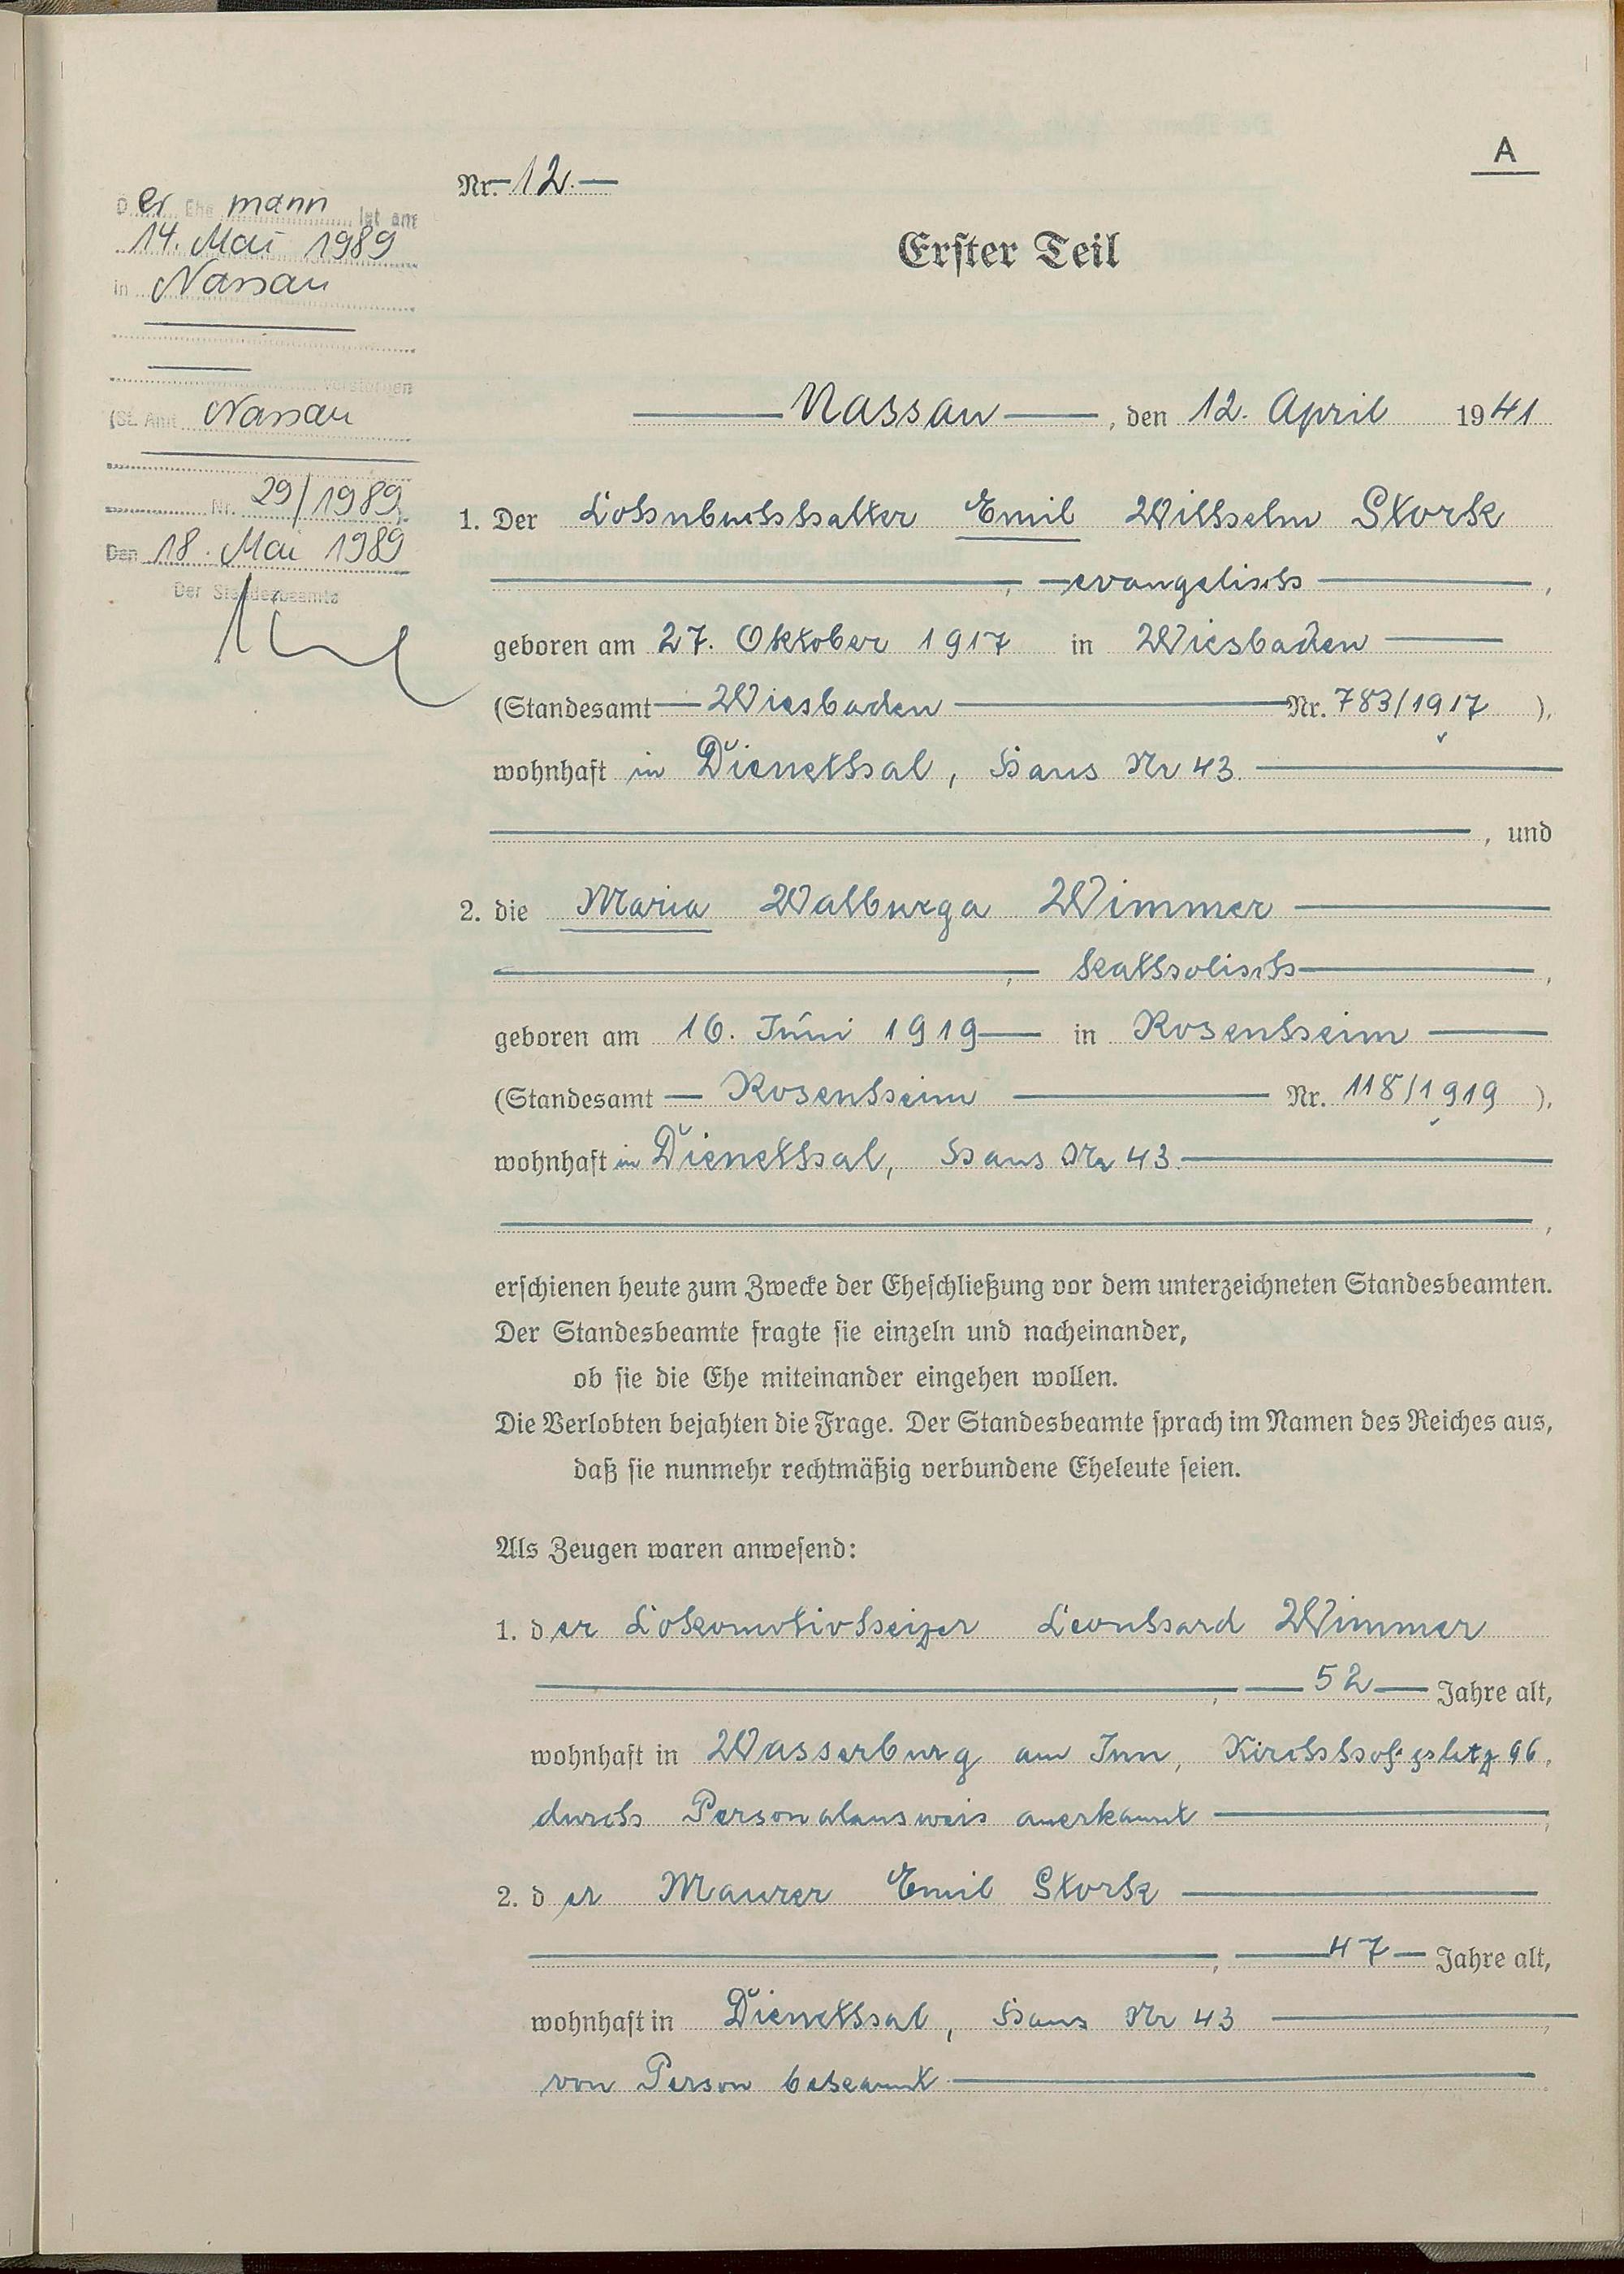 A
Nr. 12.
Erster Teil
Der Ehemann ist am
14. Mai 1989
in Nassau
verstorben
(St. Amt Nassau
Nr. 29/1989
Den 18. Mai 1989
Der Standesbeamte
Nassau, den 12. April 1941
1. Der Lohnbuchhalter Emil Wilhelm Stork
, evangelisch,
geboren am 27. Oktober 1917 in Wiesbaden
(Standesamt Wiesbaden Nr. 783/1917 ),
wohnhaft in Dienethal, Haus Nr 43.
, und
2. die Maria Walburga Wimmer
, katholisch,
geboren am 16. Juni 1919 in Rosenheim
(Standesamt Rosenheim Nr. 118/1919 ),
wohnhaft in Dienethal, Haus Nr 43.
,
erschienen heute zum Zwecke der Eheschließung vor dem unterzeichneten Standesbeamten.
Der Standesbeamte fragte sie einzeln und nacheinander,
ob sie die Ehe miteinander eingehen wollen.
Die Verlobten bejahten die Frage. Der Standesbeamte sprach im Namen des Reiches aus,
daß sie nunmehr rechtmäßig verbundene Eheleute seien.
Als Zeugen waren anwesend:
1. der Lokomotivheizer Leonhard Wimmer
, 52 Jahre alt,
wohnhaft in Wasserburg am Inn, 96,
durch Personalausweis anerkannt,
2. der Maurer Emil Stork
, 47 Jahre alt,
wohnhaft in Dienethal, Haus Nr 43,
von Person bekannt.